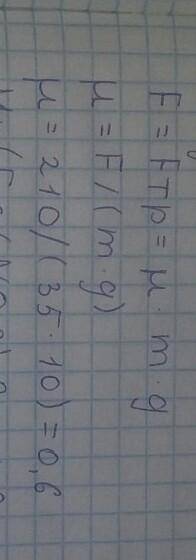 F = Fтр = μ · m · g
μ = F / (m · g)
μ = 210 / (35 · 10) = 0,6